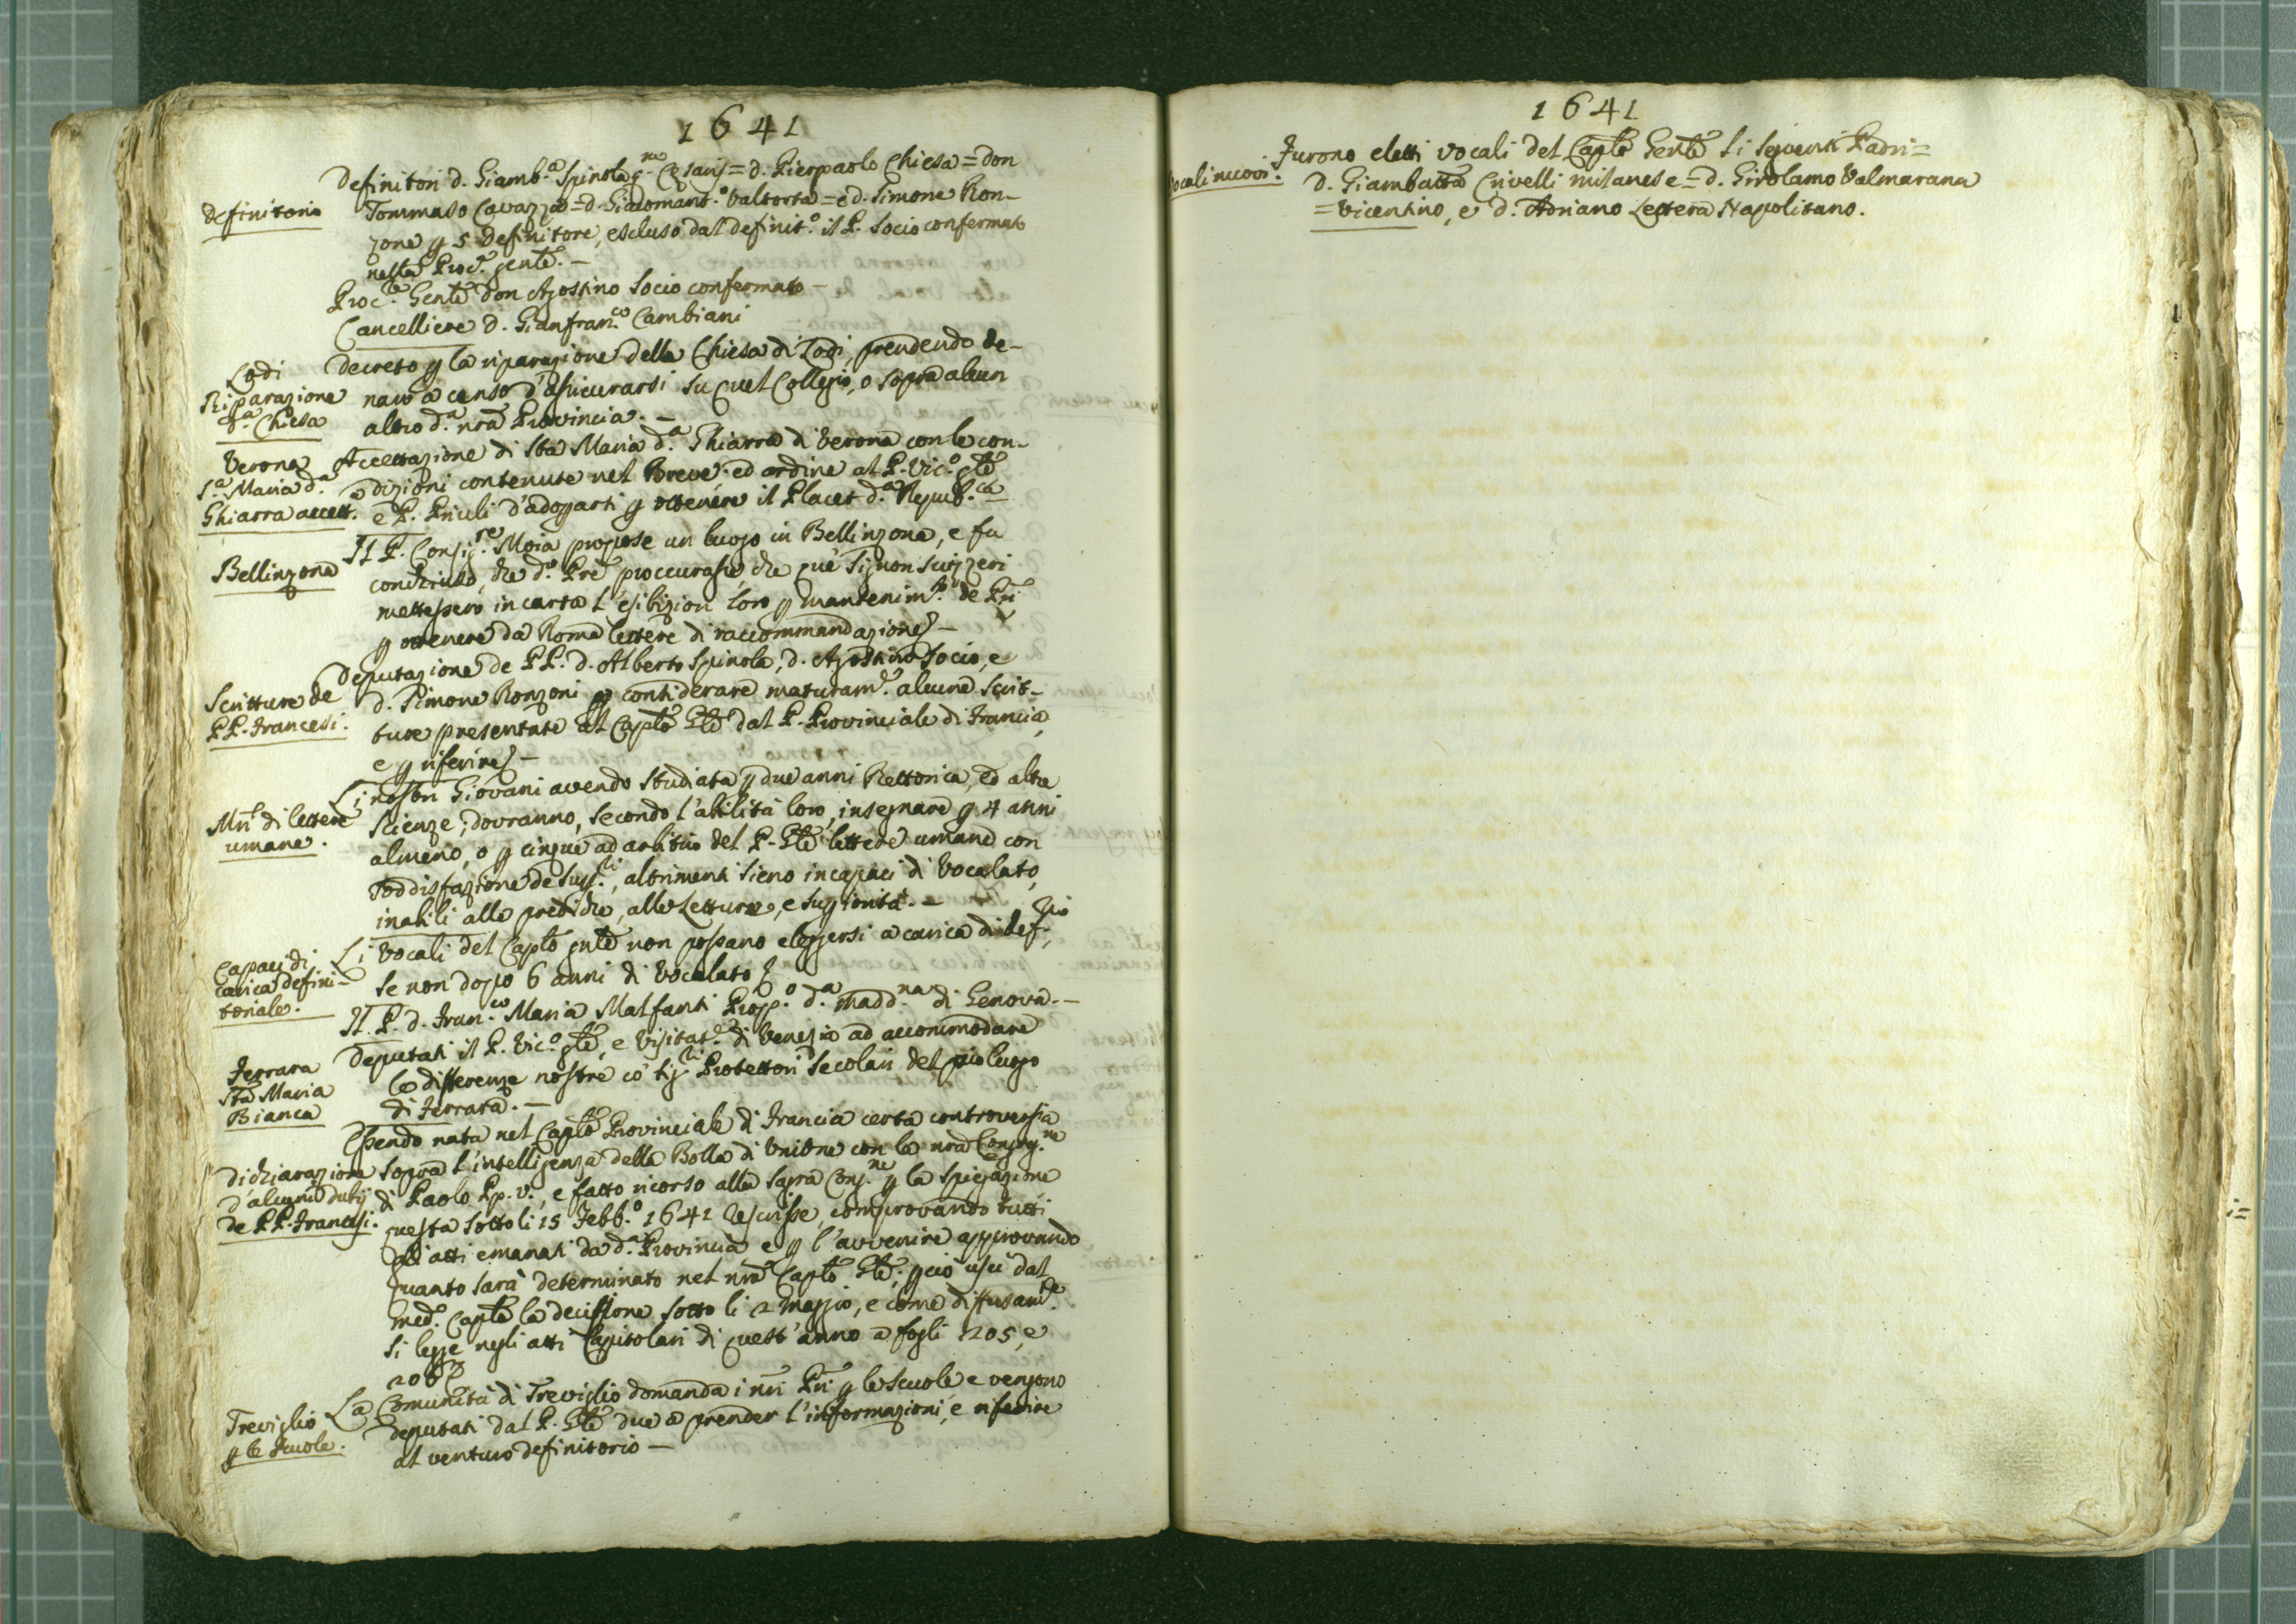 1641
Definitori d. Giamb.a Spinola q. Cesaris = d. Pierpaolo Chiesa = don
Definitorio
Tommaso Cavazza = d. Giacomant.o Valtorta = e d. Simone Ron-
zone p 5 Definitore, escluso dal definit.o il P. Socio confermato
nella Proc.a gentê. –
Proc.re Gentê Don Agostino Socio confermato –
Cancelliere d. Gianfran.co Cambiani
Lodi
Riparazione
d.a Chiesa
Decreto p la riparazione della Chiesa di Lodi, prendendo de-
naro a censo d'assicurarsi su quel Collegio, o sopra alcun
altro d.a nrã Provincia. –
Verona
S.a Maria d.a
Ghiarra accett.a
Accettazione di Sta Maria d.a Ghiarra di Verona con le con-
dizioni contenute nel Breve: ed ordine al P. Vic.o glê
e P. Priuli d'adoprarsi p ottenere il Placet d.a Repub.ca
Bellinzona
Il P. Consig.re Moia propose un luogo in Bellinzona, e fu
conchiuso, che d.o Prê proccurasse, che que' Signori Suizzeri
mettessero in carta l'esibizion loro p mantenim.to de Pri
p ottenere da Roma lettere di raccommandazione –
Scritture de
PP. Francesi.
Deputazione de PP. d. Alberto Spinola, d. Agostino Socio, e
d. Simone Ronzoni p considerare maturam.e alcune scrit-
ture presentate al Caplõ Glê dal P. Provinciale di Francia,
e p riferire –
Mri di lettere
umane.
Li nostri Giovani avendo studiata p due anni Rettorica, ed altre
scienze; dovranno, secondo l'abilità loro, insegnare p 4 anni
almeno, o p cinque ad arbitrio del P. Glê lettere umane con
soddisfazione de Sup.ri, altrimenti sieno incapaci di Vocalato,
inabili alle prediche, alle Letture, e sugiorità. –
Capaci di
carica defini-
toriale.
Li Vocali del Caplõ gnlê non possano eleggersi a carica di def.rio,
se non dopo 6 anni di Vocalato
Il P. d. Fran.co Maria Malfanti Prop.o d.a Madd.na di Genova. –
Ferrara
Sta Maria
Bianca
Deputati il P. Vic.o glê, e Visitat.e di Venezia ad accommodare
le differenze nostre cõ li Sig.ri Protettori Secolari del pio luogo
di Ferrara. –
Dichiarazione
d'alcuni dubij
de PP. Francesi.
Essendo nata nel Caplõ Provinciale di Francia certa controversia
sopra l'intelligenza della Bolla di Unione con la nrã Congreg.ne
di Paolo Pp. v., e fatto ricorso alla Sagra Cong.ne p la spiegazione
questa sotto li 15 Febb.o 1641 rescrisse, comprovando tutti
gli atti emanati da d.a Provincia e p l'avvenire approvando
quanto sarà determinato nel nrõ Caplõ Glê; pciò uscì dal
med.o Caplõ la decissione sotto li 2 Maggio, e come diffusam.te
si legge negli atti Capitolari di quest'anno a fogli 205, e
206
Treviglio
p le scuole.
La Comunità di Treviglio domanda i nri Pri p le Scuole e vengono
deputati dal P. Glê due a prender l'informazioni, e riferire
al venturo definitorio –
1641
Vocali nuovi.
Furono eletti vocali del Caplõ Gentê li seguenti Padri =
D. Giambatta Crivelli milanese = d. Girolamo Valmarana
= Vicentino, e d. Adriano Lettera Napolitano.